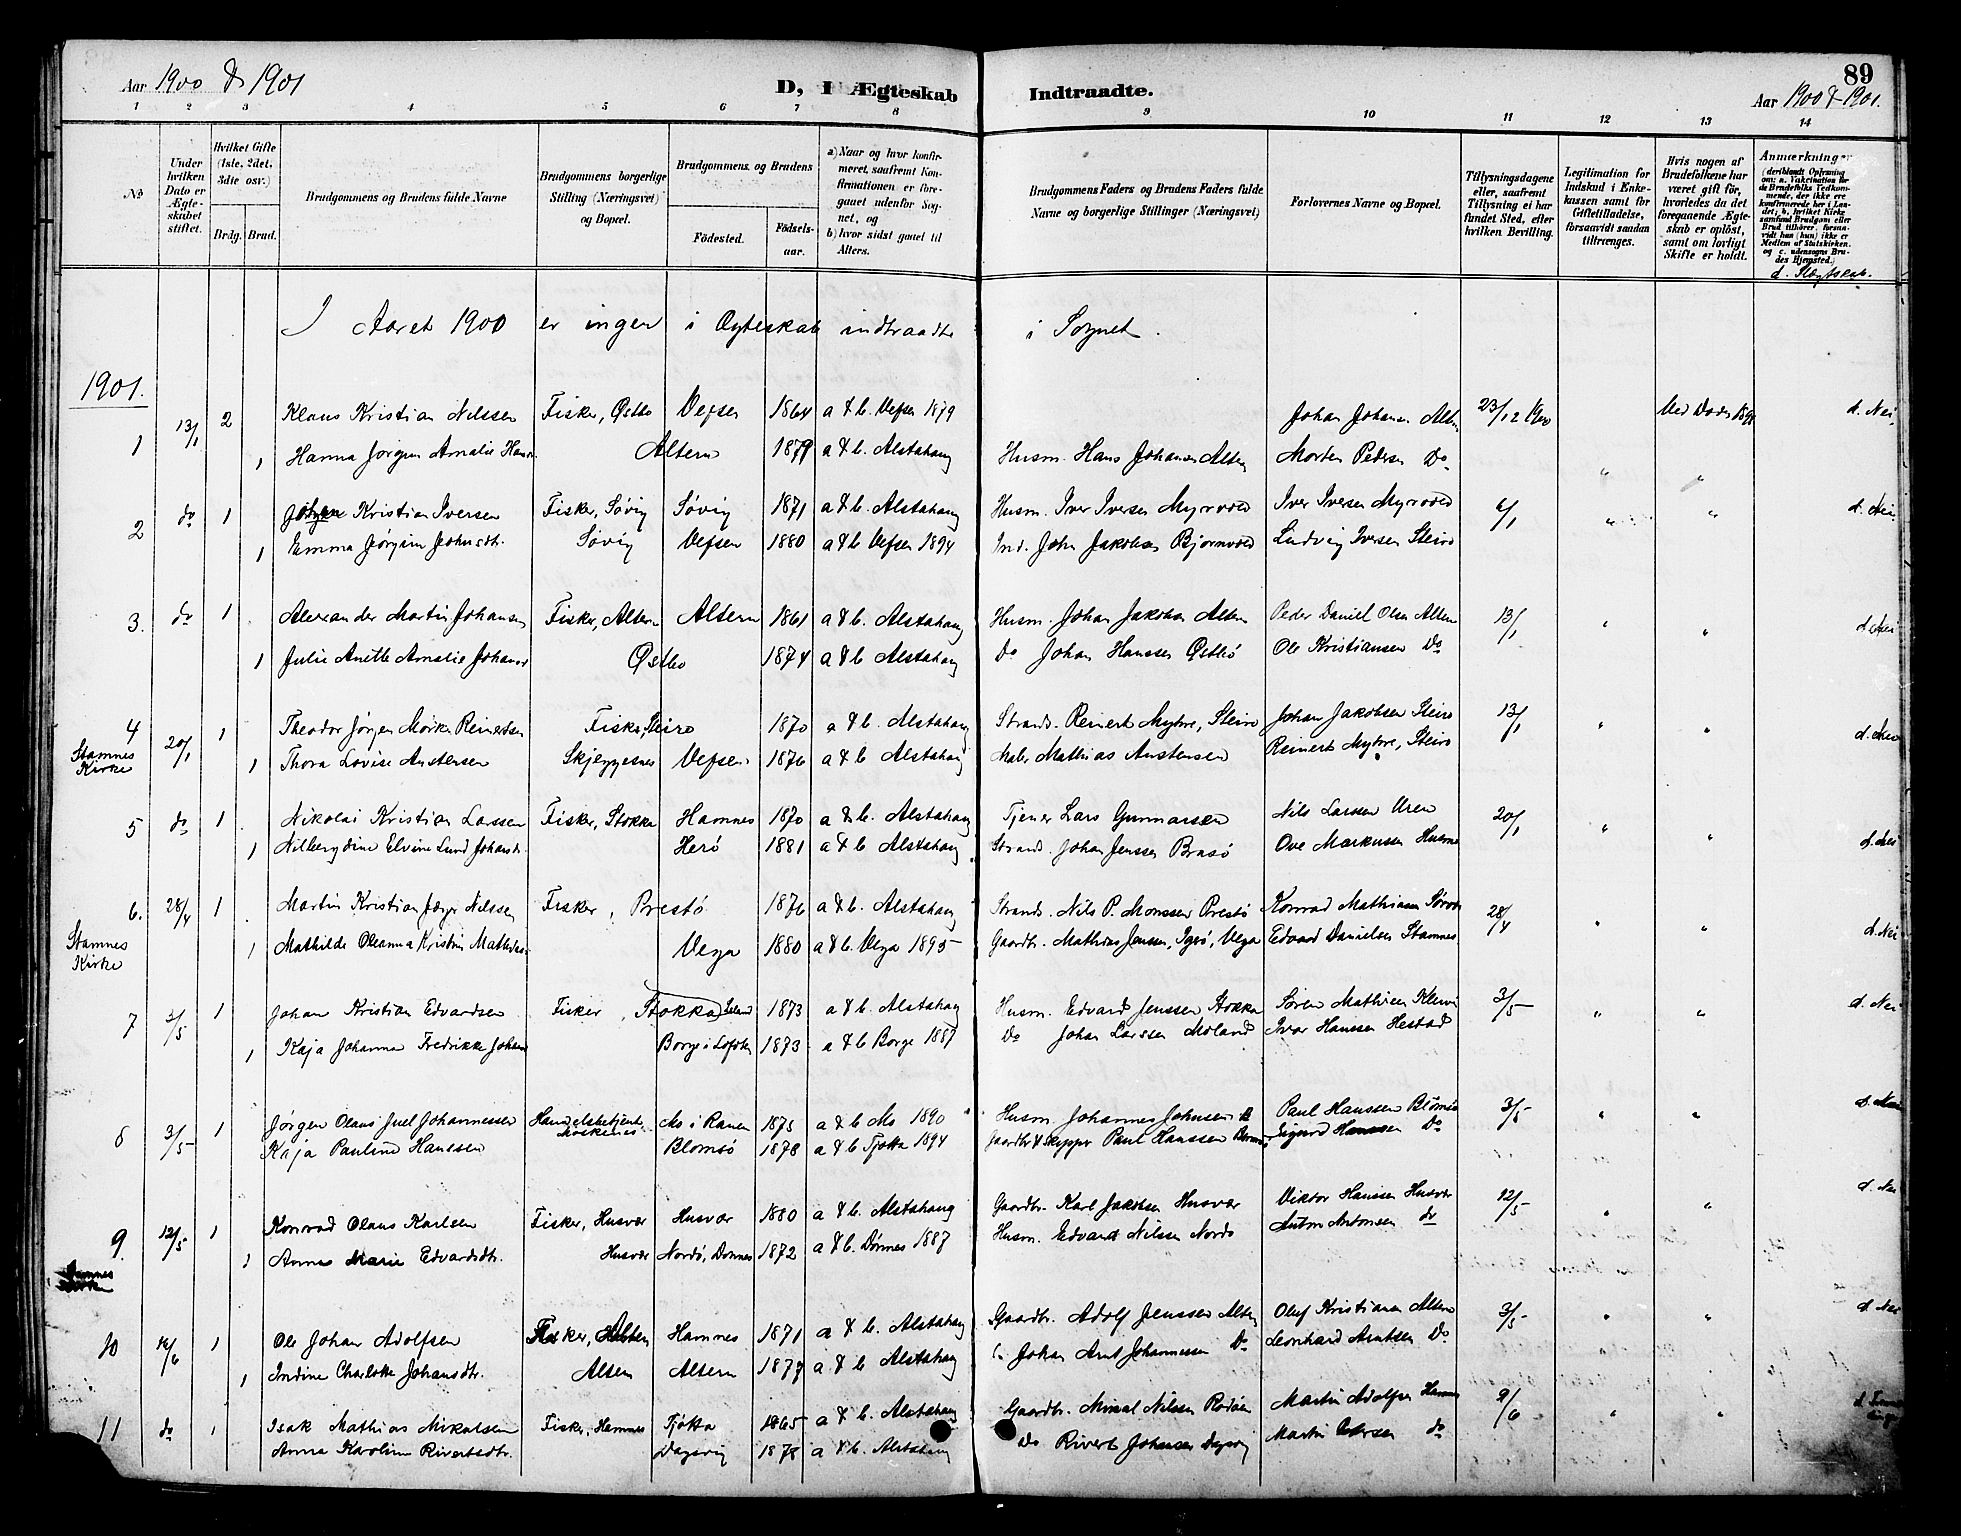 Aar 1900 & 1901
D, I Ægteskab Indtraadte.
89
Aar 1900 & 1901.
1 2 3 4 5 6 7 8 9 10 11 12 13 14
№
Under hvilken Dato er Ægteskabet stiftet.
Hvilket Gifte (1ste, 2det, 3die osv.)
Brdg. Brud.
Brudgommens og Brudens fulde Navne
Brudgommens borgerlige Stilling (Næringsvei) og Bopæl.
Brudgommens og Brudens
Fødested.
Fødselsaar.
a) Naar og hvor konfirmeret, saafremt Konfirmationen er foregaaet udenfor Sognet, og
b) hvor sidst gaaet til Alters.
Brudgommens Faders og Brudens Faders fulde Navne og borgerlige Stillinger (Næringsvei)
Forlovernes Navne og Bopæl.
Tillysningsdagene eller, saafremt Tillysning ei har fundet Sted, efter hvilken Bevilling.
Legitimation for Indskud i Enkekassen samt for Giftetilladelse, forsaavidt saadan tiltrænges.
Hvis nogen af Brudefolkene har været gift før, hvorledes da det foregaaende Ægteskab er opløst, samt om lovligt Skifte er holdt.
Anmærkninger (deriblandt Oplysning om: a. Vakcination for de Brudefolks Vedkommende, der ikke ere konfirmerede her i Landet; b. hvilket Kirkesamfund Brudgom eller Brud tilhører, forsaavidt han (hun) ikke er Medlem af Statskirken. og c. udensogns Brudes Hjemsted.)
d. Slægtskab.
I Aaret 1900 er ingen i Ægteskab indtraadte i Sognet.
1901.
1 13/1 2 Klaus Kristian Nilssen Fisker, Østbo Vefsen 1864 a & b. Vefsen 1879 Johan Johansen Altern 23/12 1900 Ved Døden d. Nei
1 Hanna Jørgine Amalie Altern 1879 a & b. Alstahaug Husm. Hans Johansen Altern Morten Pedersen Do
2 do 1 Johan Kristian Iversen Fisker, Søvig Søvig 1871 a & b. Alstahaug Husm. Iver Iversen Myrvold Iver Iversen Myrvold 6/1 d. Nei
1 Emma Jørgine Johnsdtr. Søvig Vefsen 1880 a & b Vefsen 1894 Ind. John Jakobsen Bjørnvold Ludvig Iversen Steiro
3. do 1 Alexander Martin Johansen Fisker, Altern Altern 1861 a & b. Alstahaug Husm. Johan Jakobsen Altern Peder Daniel Olsen Altern 13/1 d. Nei
1 Julie Anette Amalie Østbo 1874 a & b. Alstahaug Do Johan Hanssen Østbø Ole Kristiansen Do
4 Stamnes Kirke 20/1 1 Theodor Jørgen Mørk Reinertsen Fisker, Steiro 1870 a & b. Alstahaug Strands. Reinert Myhre, Steiro Johan Jakobsen Steiro 13/1 d. Nei
1 Thora Lovise Anstensen Skjeggesnes Vefsen 1876 a & b. Alstahaug Maler Mathias Anstensen Reinert Myhre, Steiro
5 do 1 Nikolai Kristian Larssen Fisker, Stokka Hamnes 1870 a & b. Alstahaug Tjener Lars Gunnarsen Nils Larssen Uren 20/1 d. Nei
1 Elvine Lund Herø 1881 a & b. Alstahaug Strands. Johan Jenssen Brasø Ove Markussen
6. Stamnes Kirke 28/4 1 Martin Kristian Nilssen Fisker, Prestø 1876 a & b. Alstahaug Strands. Nils P. Monssen Prestø Konrad Mathiasen 28/4 d. Nei
1 Mathilde Oleanna Kristine Vega 1880 a & b. Vega 1895 Gaardbr. Mathias Jenssen, Igerø, Vega Edvard Danielsen Stamnes
7 3/5 1 Johan Kristian Edvardsen Fisker, Stokka 1873 a & b. Alstahaug Husm. Edvard Jenssen Stokka Søren Mathisen 3/5 d. Nei
1 Kaja Johanna Fredrikke Borge i Lofoten 1873 a & b Borge 1887 Do Johan Larssen Moland Ivar Hanssen Hestad
8 3/5 1 Jørgen Olaus Juel Johannessen Handelsbetjent Mo i Ranen 1875 a & b Mo 1890 Husm. Johannes Johnsen Paul Hanssen Blomsø 3/5 d. Nei
Kaja Pauline Hanssen Blomsø 1878 a & b Tjøtta 1894 Gaardbr & Skipper Paul Hanssen Sigurd Hanssen Do
9. 12/5 1 Konrad Olaus Karlsen Fisker, Husvær Husvær 1880 a & b. Alstahaug Gaardbr. Karl Jakobsen Husvær Viktor Hanssen Husvær 12/5 d. Nei
1 Anna Marie Edvardsdtr. Husvær Nordø, Dønnes 1872 a & b. Dønnes 1887 Husm. Edvard Nilssen Nordø Anton Antonsen do
10 16/6 1 Ole Johan Adolfsen Fisker, Altern Hamnes 1871 a & b. Alstahaug Gaardbr. Adolf Jenssen Altern Oluf Kristiansen Altern 3/5 d. Nei
1 Indine Charlotte Johansdtr. Altern Altern 1877 a & b. Alstahaug Johan Arnt Johannessen Do Leonhard Arntsen Do
11 do 1 Isak Mathias Mikalsen Fisker, Hamnes Tjøtta 1865 a & b. Alstahaug Gaardbr. Mikal Nilssen Rødøen Martin Adolfsen Hamnes 9/6
Anna Karoline Rivertsdtr. Dagsvig 1878 a & b. Alstahaug Do Rivert Johansen Dagsvig Martin Do